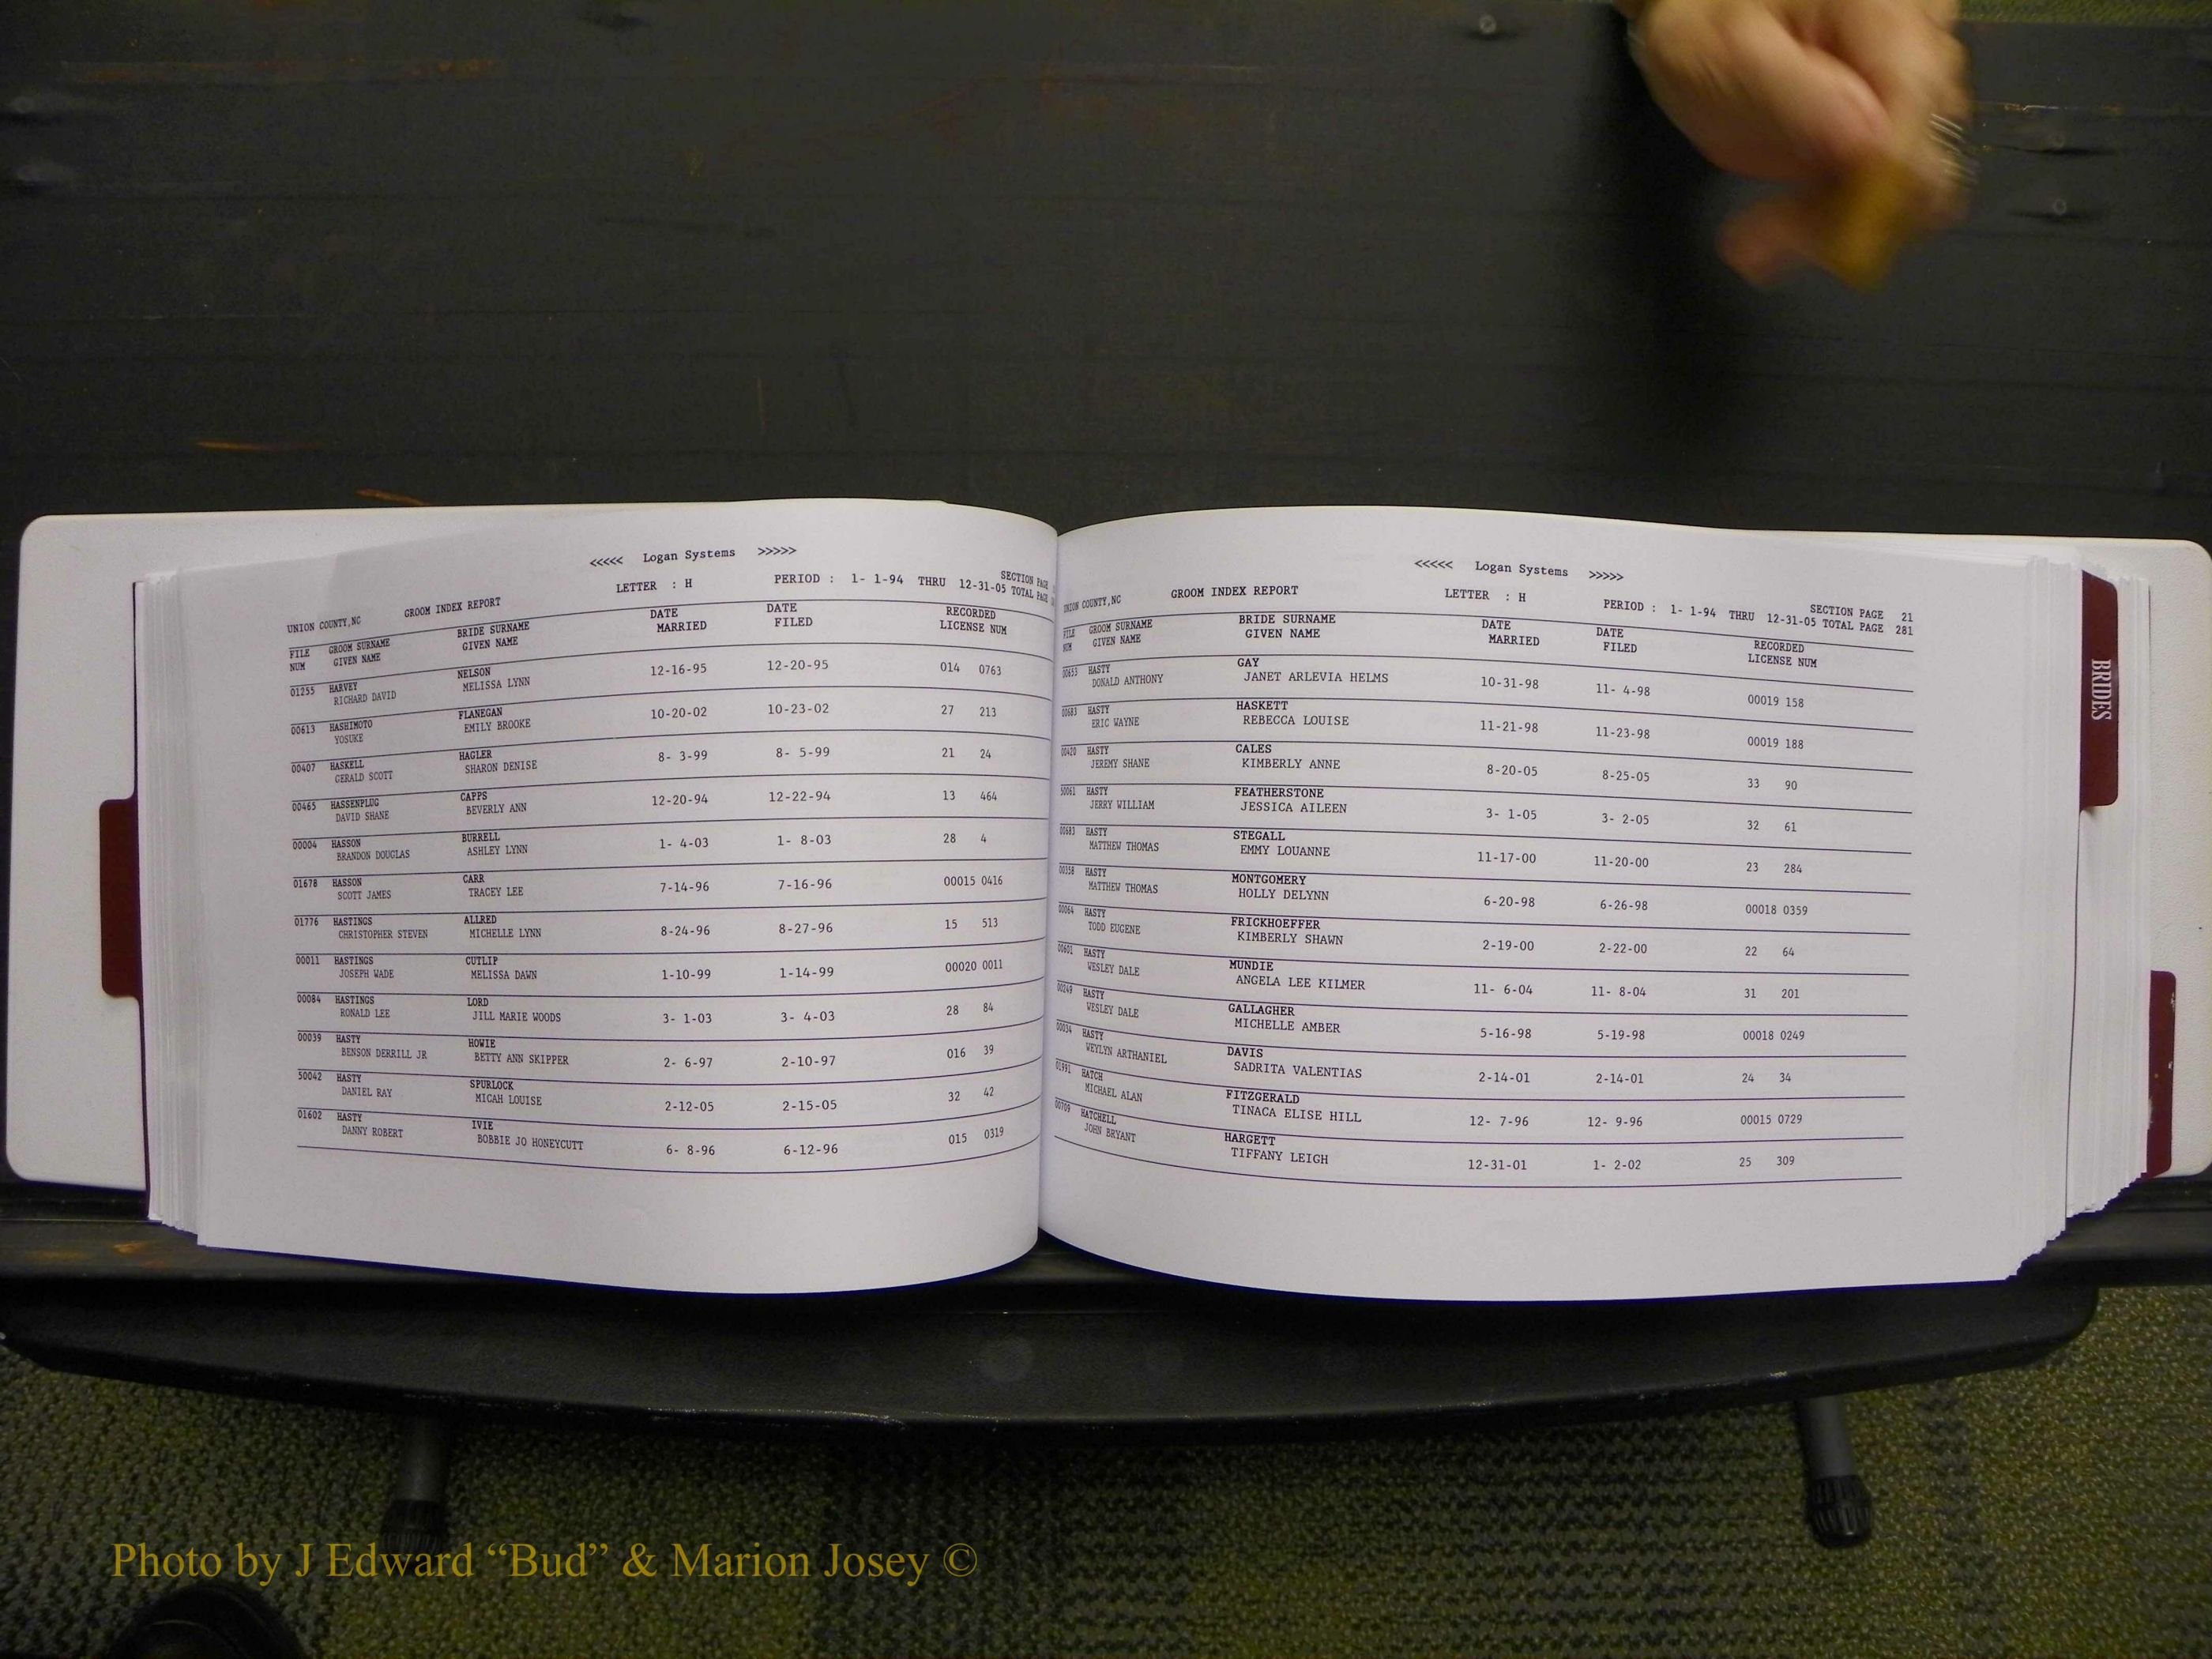 <<<<< Logan Systems >>>>>
UNION COUNTY,NC GROOM INDEX REPORT LETTER : H PERIOD : 1- 1-94 THRU 12-31-05 SECTION PAGE
TOTAL PAGE
FILE GROOM SURNAME BRIDE SURNAME DATE DATE RECORDED
NUM GIVEN NAME GIVEN NAME MARRIED FILED LICENSE NUM
01255 HARVEY NELSON 12-16-95 12-20-95 014 0763
RICHARD DAVID MELISSA LYNN
00613 HASHIMOTO FLANEGAN 10-20-02 10-23-02 27 213
YOSUKE EMILY BROOKE
00407 HASKELL HAGLER 8- 3-99 8- 5-99 21 24
GERALD SCOTT SHARON DENISE
00465 HASSENPLUG CAPPS 12-20-94 12-22-94 13 464
DAVID SHANE BEVERLY ANN
00004 HASSON BURRELL 1- 4-03 1- 8-03 28 4
BRANDON DOUGLAS ASHLEY LYNN
01678 HASSON CARR 7-14-96 7-16-96 00015 0416
SCOTT JAMES TRACEY LEE
01776 HASTINGS ALLRED 8-24-96 8-27-96 15 513
CHRISTOPHER STEVEN MICHELLE LYNN
00011 HASTINGS CUTLIP 1-10-99 1-14-99 00020 0011
JOSEPH WADE MELISSA DAWN
00084 HASTINGS LORD 3- 1-03 3- 4-03 28 84
RONALD LEE JILL MARIE WOODS
00039 HASTY HOWIE 2- 6-97 2-10-97 016 39
BENSON DERRILL JR BETTY ANN SKIPPER
50042 HASTY SPURLOCK 2-12-05 2-15-05 32 42
DANIEL RAY MICAH LOUISE
01602 HASTY IVIE 6- 8-96 6-12-96 015 0319
DANNY ROBERT BOBBIE JO HONEYCUTT
<<<<< Logan Systems >>>>>
UNION COUNTY,NC GROOM INDEX REPORT LETTER : H PERIOD : 1- 1-94 THRU 12-31-05 SECTION PAGE 21
TOTAL PAGE 281
FILE GROOM SURNAME BRIDE SURNAME DATE DATE RECORDED
NUM GIVEN NAME GIVEN NAME MARRIED FILED LICENSE NUM
00653 HASTY GAY 10-31-98 11- 4-98 00019 158
DONALD ANTHONY JANET ARLEVIA HELMS
00683 HASTY HASKETT 11-21-98 11-23-98 00019 188
ERIC WAYNE REBECCA LOUISE
00420 HASTY CALES 8-20-05 8-25-05 33 90
JEREMY SHANE KIMBERLY ANNE
50061 HASTY FEATHERSTONE 3- 1-05 3- 2-05 32 61
JERRY WILLIAM JESSICA AILEEN
00683 HASTY STEGALL 11-17-00 11-20-00 23 284
MATTHEW THOMAS EMMY LOUANNE
00358 HASTY MONTGOMERY 6-20-98 6-26-98 00018 0359
MATTHEW THOMAS HOLLY DELYNN
00064 HASTY FRICKHOEFFER 2-19-00 2-22-00 22 64
TODD EUGENE KIMBERLY SHAWN
00601 HASTY MUNDIE 11- 6-04 11- 8-04 31 201
WESLEY DALE ANGELA LEE KILMER
00249 HASTY GALLAGHER 5-16-98 5-19-98 00018 0249
WESLEY DALE MICHELLE AMBER
00034 HASTY DAVIS 2-14-01 2-14-01 24 34
WEYLYN ARTHANIEL SADRITA VALENTIAS
01991 HATCH FITZGERALD 12- 7-96 12- 9-96 00015 0729
MICHAEL ALAN TINACA ELISE HILL
00709 HATCHELL HARGETT 12-31-01 1- 2-02 25 309
JOHN BRYANT TIFFANY LEIGH
BRIDES
Photo by J Edward “Bud” & Marion Josey ©